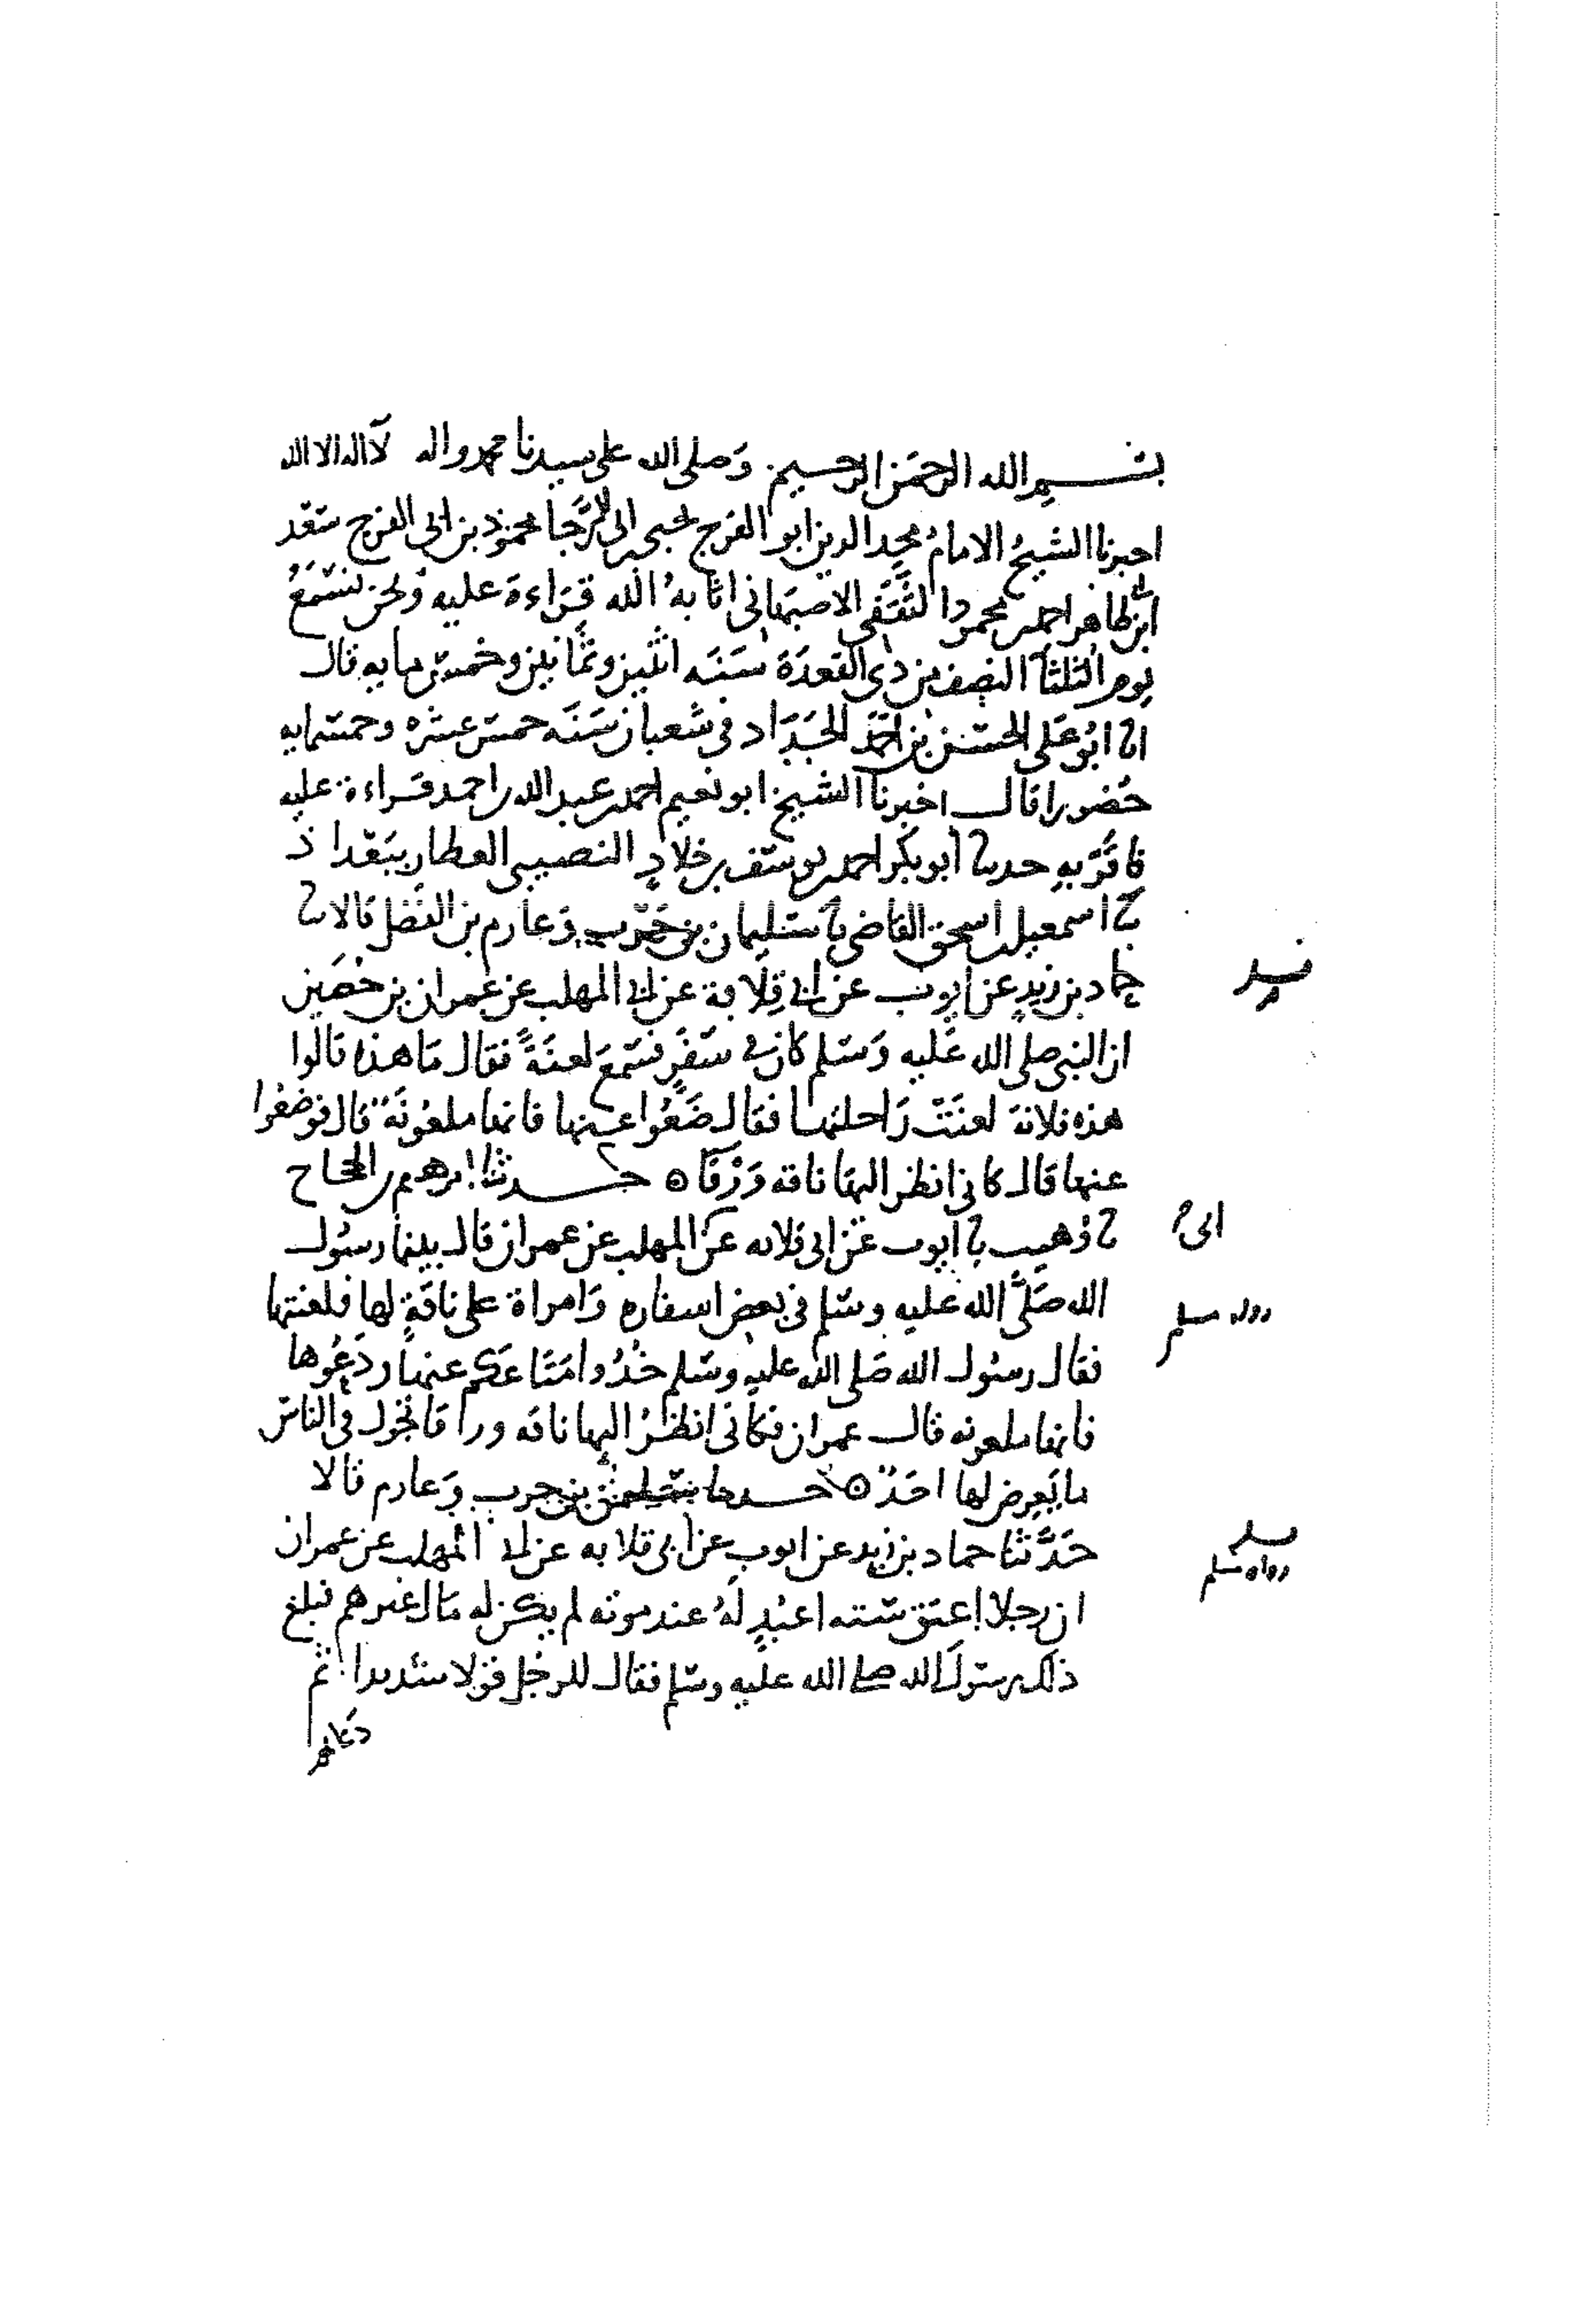 بسم الله الرحمن الرحيم وصلى الله على سيدنا محمد واله لا اله الا الله
اخبرنا الشيخ الامام مجد الدين ابو الفرج يحيى بن ابى الرجا محمود بن ابى الفرج سعد
ابن ابى طاهر احمد بن محمود الثقفى الاصبهانى اثابه الله قراءة عليه ونحن نسمع
يوم الثلثا النصف من ذى القعدة سنه اثنين وثمانين وخمس مايه قال
انا ابو على الحسن بن احمد الحداد فى شعبان سنه خمس عشره وخمسمايه
حضورا قال اخبرنا الشيخ ابو نعيم احمد بن عبد الله بن احمد قراءة عليه
فاقر به حدثنا ابو بكر احمد بن يوسف بن خلاد النصيبى العطار ببغداذ
ثنا اسمعيل بن اسحق القاضى ثنا سليمان بن حرب وعارم بن الفضل قالا ثنا
حماد بن زيد عن ايوب عن ابى قلابة عن ابى المهلب عن عمران بن حصين
ان النبى صلى الله عليه وسلم كان فى سفر فسمع لعنة فقال ما هذه قالوا
هذه فلانة لعنت راحلتها فقال ضعوا عنها فانها ملعونة قال فوضعوا
عنها قال كانى انظر اليها ناقه ورقا ه حدثنا ابرهيم بن الحجاج
ثنا وهيب ثنا ايوب عن ابى قلابه عن المهلب عن عمران قال بينما رسول
ابى
الله صلى الله عليه وسلم فى بعض اسفاره وامراة على ناقة لها فلعنتها
رواه مسلم
فقال رسول الله صلى الله عليه وسلم خذوا متاعكم عنها ودعوها
فانها ملعونه قال عمران فكانى انظر اليها ناقه ورقا تجول فى الناس
ما يعرض لها احد ه حدثنا سليمن بن حرب وعارم قالا
حدثنا حماد بن زيد عن ايوب عن ابى قلابه عن ابى المهلب عن عمران
رواه مسلم
ان رجلا اعتق سته اعبد له عند موته لم يكن له مال غيرهم فبلغ
ذلك رسول الله صلى الله عليه وسلم فقال للرجل قولا شديدا ثم
دعاهم